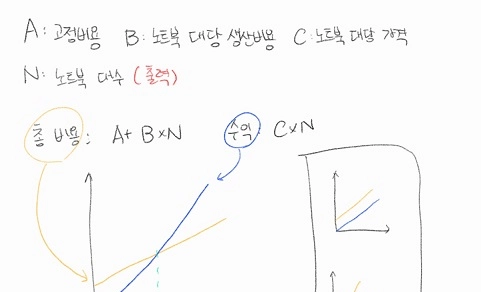 A: 고정비용 B: 노트북 대당 생산비용 C: 노트북 대당 가격
N: 노트북 대수 (출력)
총 비용: A+ B×N 수익: C×N